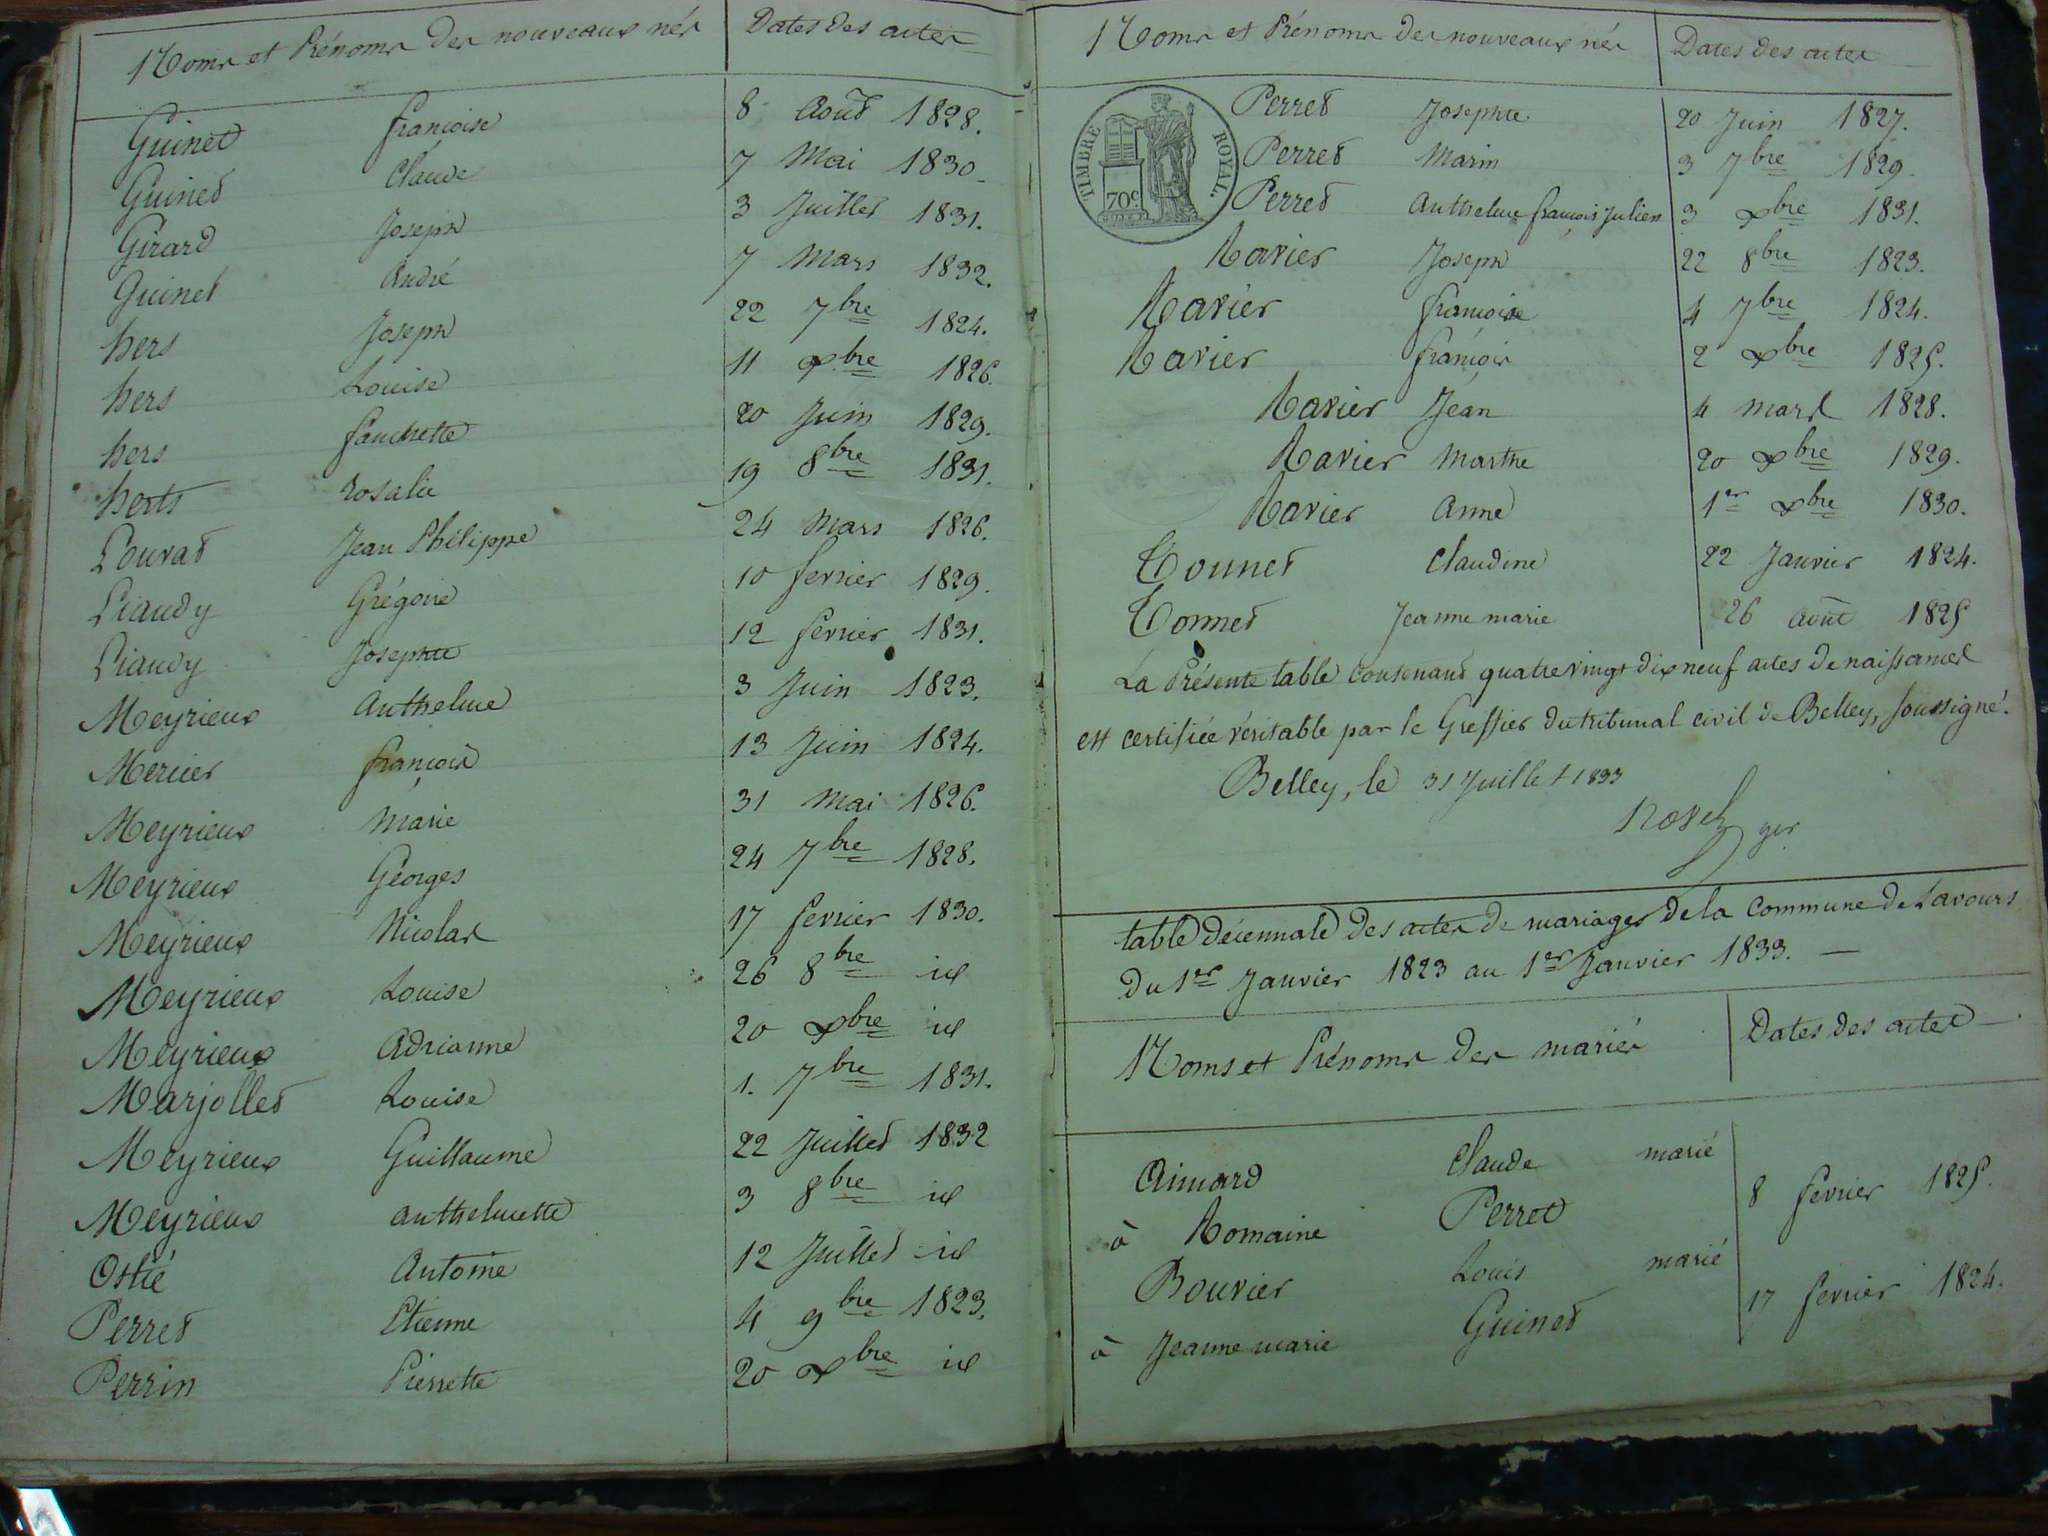 Noms et Prénoms des nouveaux nés Dates des actes
Guinet françoise 8 Août 1828.
Guinet Claude 7 Mai 1830
Girard Joseph 3 Juillet 1831.
Guinet André 7 Mars 1832.
hers Joseph 22 7bre 1824.
hers Louise 11 xbre 1826.
hers fanchette 20 Juin 1829.
herts rosalie 19 8bre 1831.
Louvat Jean Philippe 24 Mars 1826.
Liaudy Grégoire 10 fevrier 1829.
Liaudy Josephte 12 fevrier 1831.
Meyrieux Anthelme 3 Juin 1823.
Mercier françois 13 Juin 1824.
Meyrieux Marie 31 Mai 1826.
Meyrieux Géorges 24 7bre 1828.
Meyrieux Nicolas 17 fevrier 1830.
Meyrieux Louise 26 8bre id
Meyrieux Adrianne 20 xbre id
Marjollet Louise 1. 7bre 1831.
Meyrieux Guillaume 22 Juillet 1832
Meyrieux anthelmette 3 8bre id
Ostié Antoine 12 Juillet id
Perret Etienne 4 9bre 1823.
Perrin Pierrette 20 xbre id
Noms et Prénoms des nouveaux nés Dates des actes
TIMBRE ROYAL.
70c.
Perret Josephte 20 Juin 1827.
Perret Marin 3 7bre 1829.
Perret Anthelme françois Julien 3 xbre 1831.
Ravier Joseph 22 8bre 1823.
Ravier françoise 4 7bre 1824.
Ravier françois 2 xbre 1825.
Ravier Jean 4 mars 1828.
Ravier Marthe 20 xbre 1829.
Ravier Anne 1er xbre 1830.
Tounet Claudine 22 Janvier 1824.
Tonnet Jeanne marie 26 août 1825
La Présente table contenant quatre vingt dix neuf actes de naissances
est certifiée véritable par le Greffier du tribunal civil de Belley, soussigné.
Belley, le 31 Juillet 1833
table décennale des actes de mariages de la Commune de Lavours
du 1er Janvier 1823 au 1er Janvier 1833. —
Noms et Prénoms des mariés Dates des actes —
Aimard Claude marié
à Romaine Perret 8 fevrier 1825.
Bouvier Louis marié
à Jeanne marie Guinet 17 fevrier 1824.